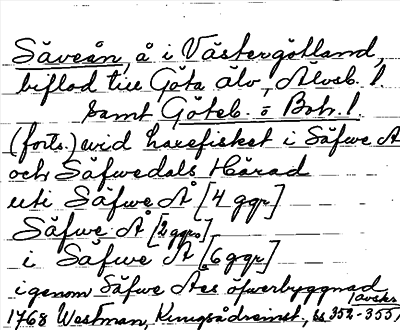 Säveån, å i Västergötland,
biflod till Göta älv, Älvsb. l.
samt Göteb. o Boh. l.
(forts.) wid Laxefisket i Säfwe Å
och Säfwedals Härad
uti Säfwe Å [4 ggr]
Säfwe Å [2 ggr]
i Säfwe Å [6 ggr]
igenom Säfwe Åes öfwerbyggnad
1768 Westman, ss 352-355, avskr.